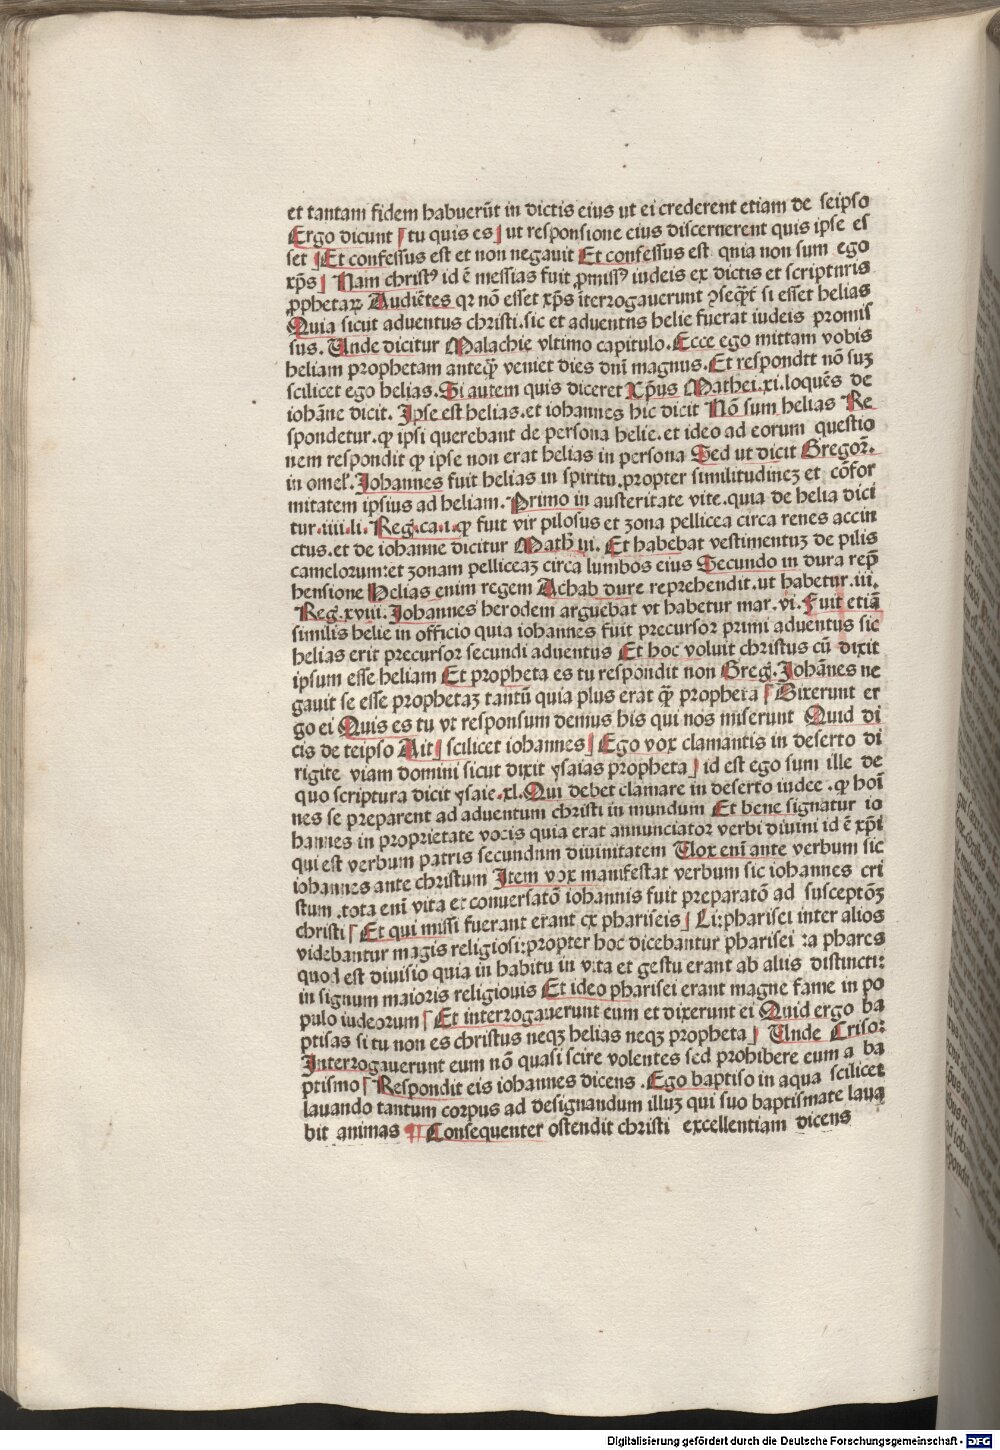 et tantam fidem habuerūt in dictis eius ut ei crederent etiam de seipso
Ergo dicunt tu quis es ut responsione eius discernerent quis ipse es
set Et confessus est et non negauit Et confessus est quia non sum ego
xp̄s Nam christꝰ id ē messias fuit ꝓmissꝰ iudeis ex dictis et scripturis
ꝓphetaꝝ Audiētes qꝛ nō esset xp̄s īterrogauerunt ꝯseq̄t si esset helias
Quia sicut aduentus christi.sic et aduentus helie fuerat iudeis promis
sus. Unde dicitur Malachie vltimo capitulo. Ecce ego mittam vobis
heliam prophetam anteq̄ veniet dies dn̄i magnus. Et respondtt nō suꝫ
scilicet ego helias. Si autem quis diceret Xp̄us Mathei.xi.loquēs de
iohāne dicit. Ipse est helias.et iohannes hic dicit Nō sum helias Re
spondetur.ꝙ ipsi querebant de persona helie.et ideo ad eorum questio
nem respondit ꝙ ipse non erat helias in persona Sed ut dicit Gregor̄.
in omel'. Iohannes fuit helias in spiritu.propter similitudineꝫ et cōfor
mitatem ipsius ad heliam. Primo in austeritate vite.quia de helia dici
tur.iiii.li. Reg.ca.i.ꝙ fuit vir pilosus et zona pellicea circa renes accin
ctus.et de iohanne dicitur Math̄ iii. Et habebat vestimentuꝫ de pilis
camelorum:et zonam pelliceaꝫ circa lumbos eius Secundo in dura rep̄
hensione Helias enim regem Achab dure reprehendit.ut habetur.iii.
Reg.xviii. Iohannes herodem arguebat vt habetur mar.vi. Fuit etiā
similis helie in officio quia iohannes fuit precursor primi aduentus sic
helias erit precursor secundi aduentus Et hoc voluit christus cū dixit
ipsum esse heliam Et propheta es tu respondit non Greg. Iohānes ne
gauit se esse prophetaꝫ tantū quia plus erat q̄ propheta Dixerunt er
go ei Quis es tu vt responsum demus his qui nos miserunt Quid di
cis de teipso Ait scilicet iohannes Ego vox clamantis in deserto di
rigite viam domini sicut dixit ysaias propheta id est ego sum ille de
quo scriptura dicit ysaie.xl. Qui debet clamare in deserto iudee.ꝙ hoī
nes se preparent ad aduentum christi in mundum Et bene signatur io
hannes in proprietate vocis quia erat annunciator verbi diuini id ē xp̄i
qui est verbum patris secundum diuinitatem Uox enī ante verbum sic
iohannes ante christum Item vox manifestat verbum sic iohannes cri
stum.tota enī vita et conuersatō iohannis fuit preparatō ad susceptōꝫ
christi Et qui missi fuerant erant ex phariseis Li:pharisei inter alios
videbantur magis religiosi:propter hoc dicebantur pharisei :a phares
quod est diuisio quia in habitu in vita et gestu erant ab aliis distincti:
in signum maioris religionis Et ideo pharisei erant magne fame in po
pulo iudeorum Et interrogauerunt eum et dixerunt ei Quid ergo ba
ptisas si tu non es christus neqꝫ helias neqꝫ propheta Unde Crisoꝛ
Interrogauerunt eum nō quasi scire volentes sed prohibere eum a ba
ptismo Respondit eis iohannes dicens .Ego baptiso in aqua scilicet
lauando tantum corpus ad designandum illuꝫ qui suo baptismate laua
bit animas Consequenter ostendit christi excellentiam dicens
Digitalisierung gefördert durch die Deutsche Forschungsgemeinschaft - DFG